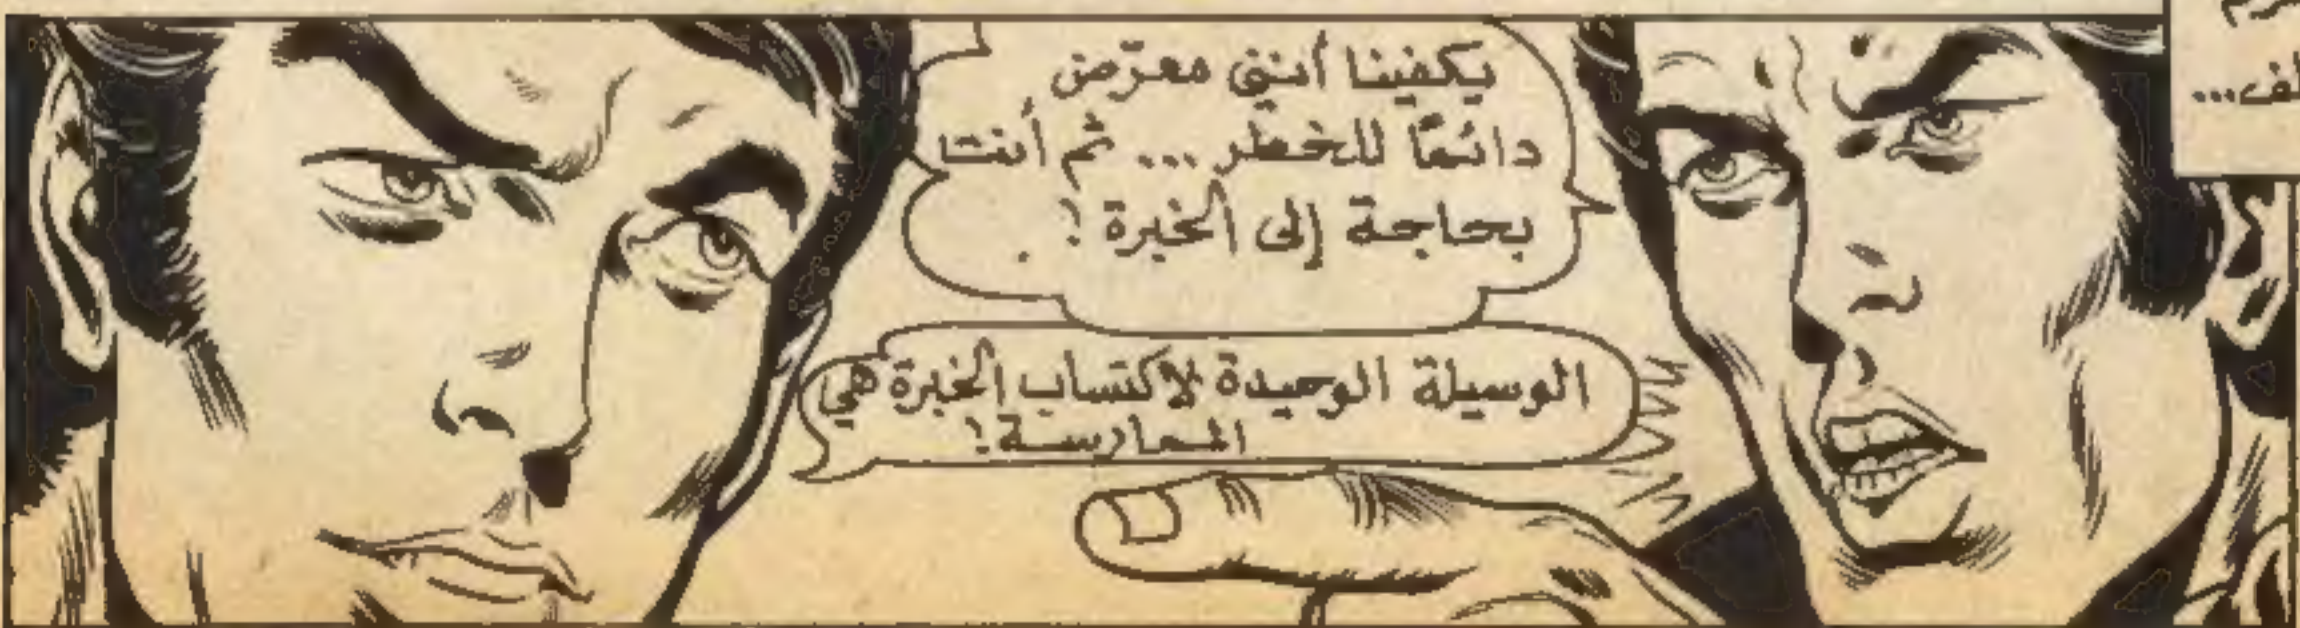 يكفينا أنني معرّض
دائمًا للخطر... ثم أنت
بحاجة إلى الخبرة!
الوسيلة الوحيدة لاكتساب الخبرة هي
الممارسة!